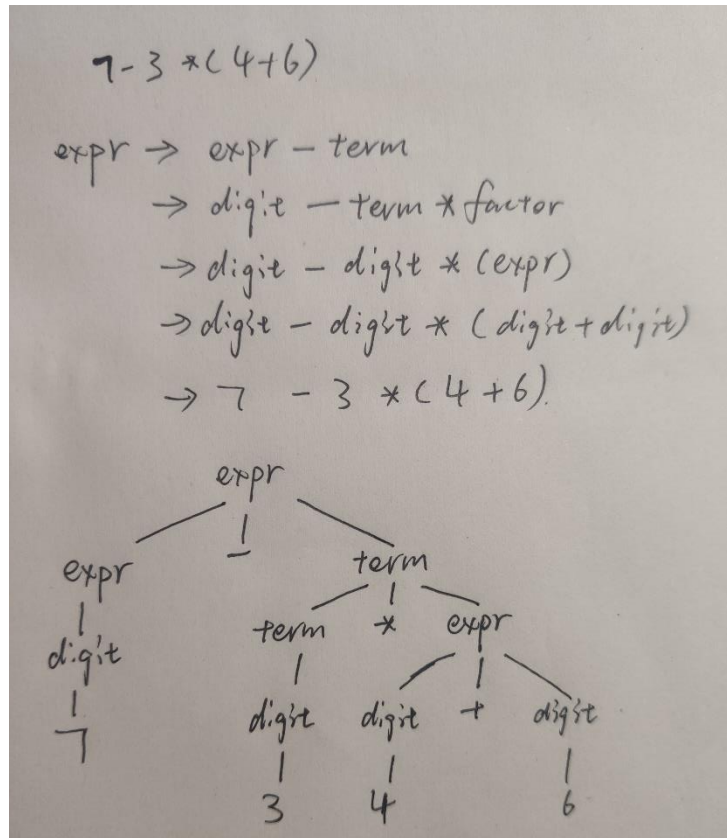 7-3*(4+6)
expr → expr - term
→ digit - term * factor
→ digit - digit * (expr)
→ digit - digit * (digit + digit)
→ 7 - 3 * (4+6).
expr
expr - term
digit term * expr
7 digit digit + digit
3 4 6